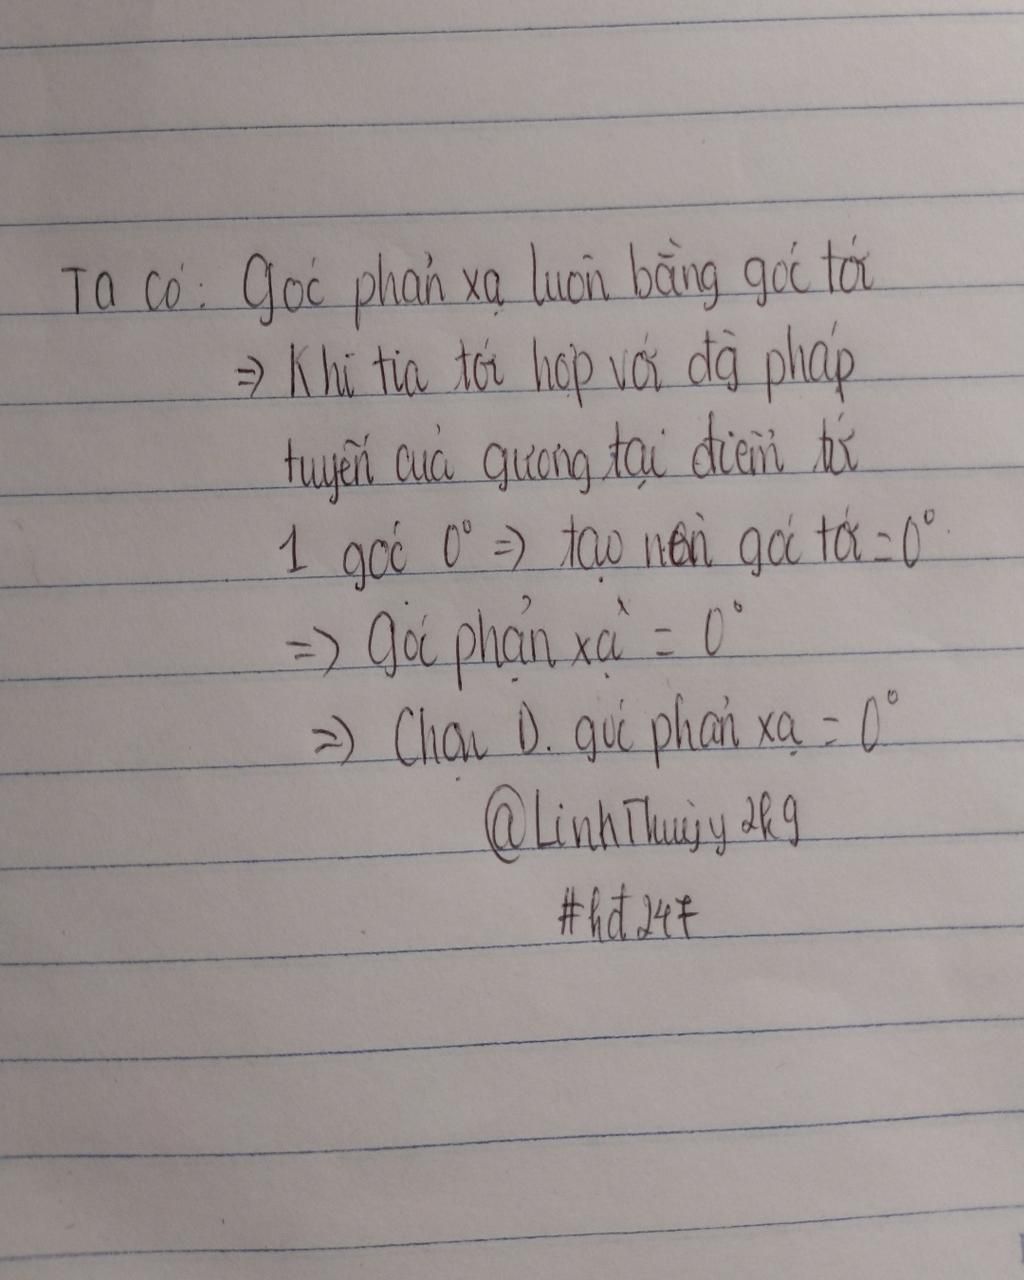 Ta có: Góc phản xạ luôn bằng góc tới
=> Khi tia tới hợp với đg pháp
tuyến của gương tại điểm tới
1 góc 0° => tạo nên góc tới = 0°
=> Góc phản xạ = 0°
=> Chọn D. góc phản xạ = 0°
@LinhThuỳy2k9
#hd247